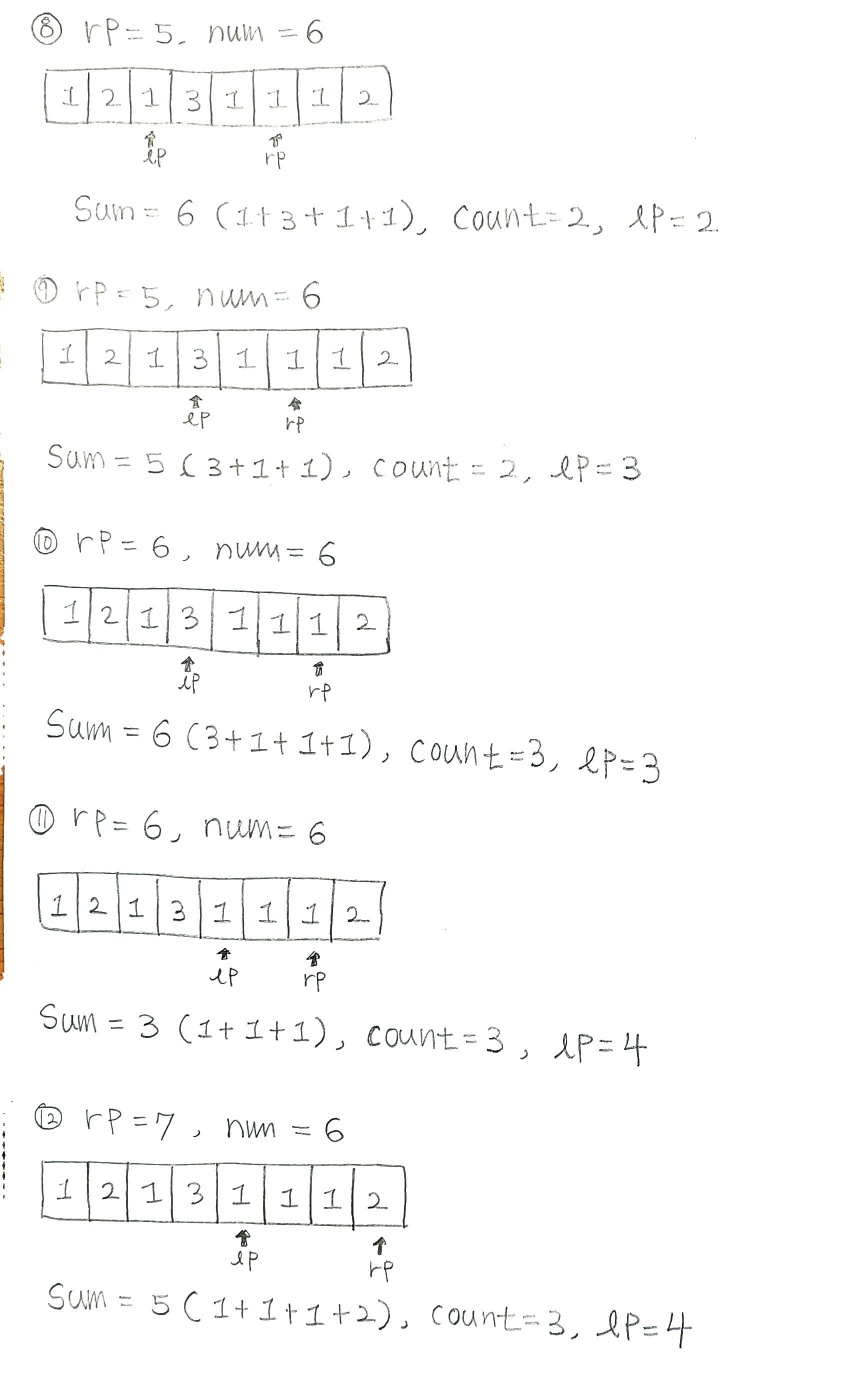 ⑧ rp = 5, num = 6
1 2 1 3 1 1 1 2
lp rp
Sum = 6 (1+3+1+1), Count=2, lp=2
⑨ rp = 5, num = 6
1 2 1 3 1 1 1 2
lp rp
Sum = 5 (3+1+1), count = 2, lp=3
⑩ rp = 6, num = 6
1 2 1 3 1 1 1 2
lp rp
Sum = 6 (3+1+1+1), count=3, lp=3
⑪ rp = 6, num = 6
1 2 1 3 1 1 1 2
lp rp
Sum = 3 (1+1+1), count=3, lp=4
⑫ rp = 7, num = 6
1 2 1 3 1 1 1 2
lp rp
Sum = 5 (1+1+1+2), count=3, lp=4